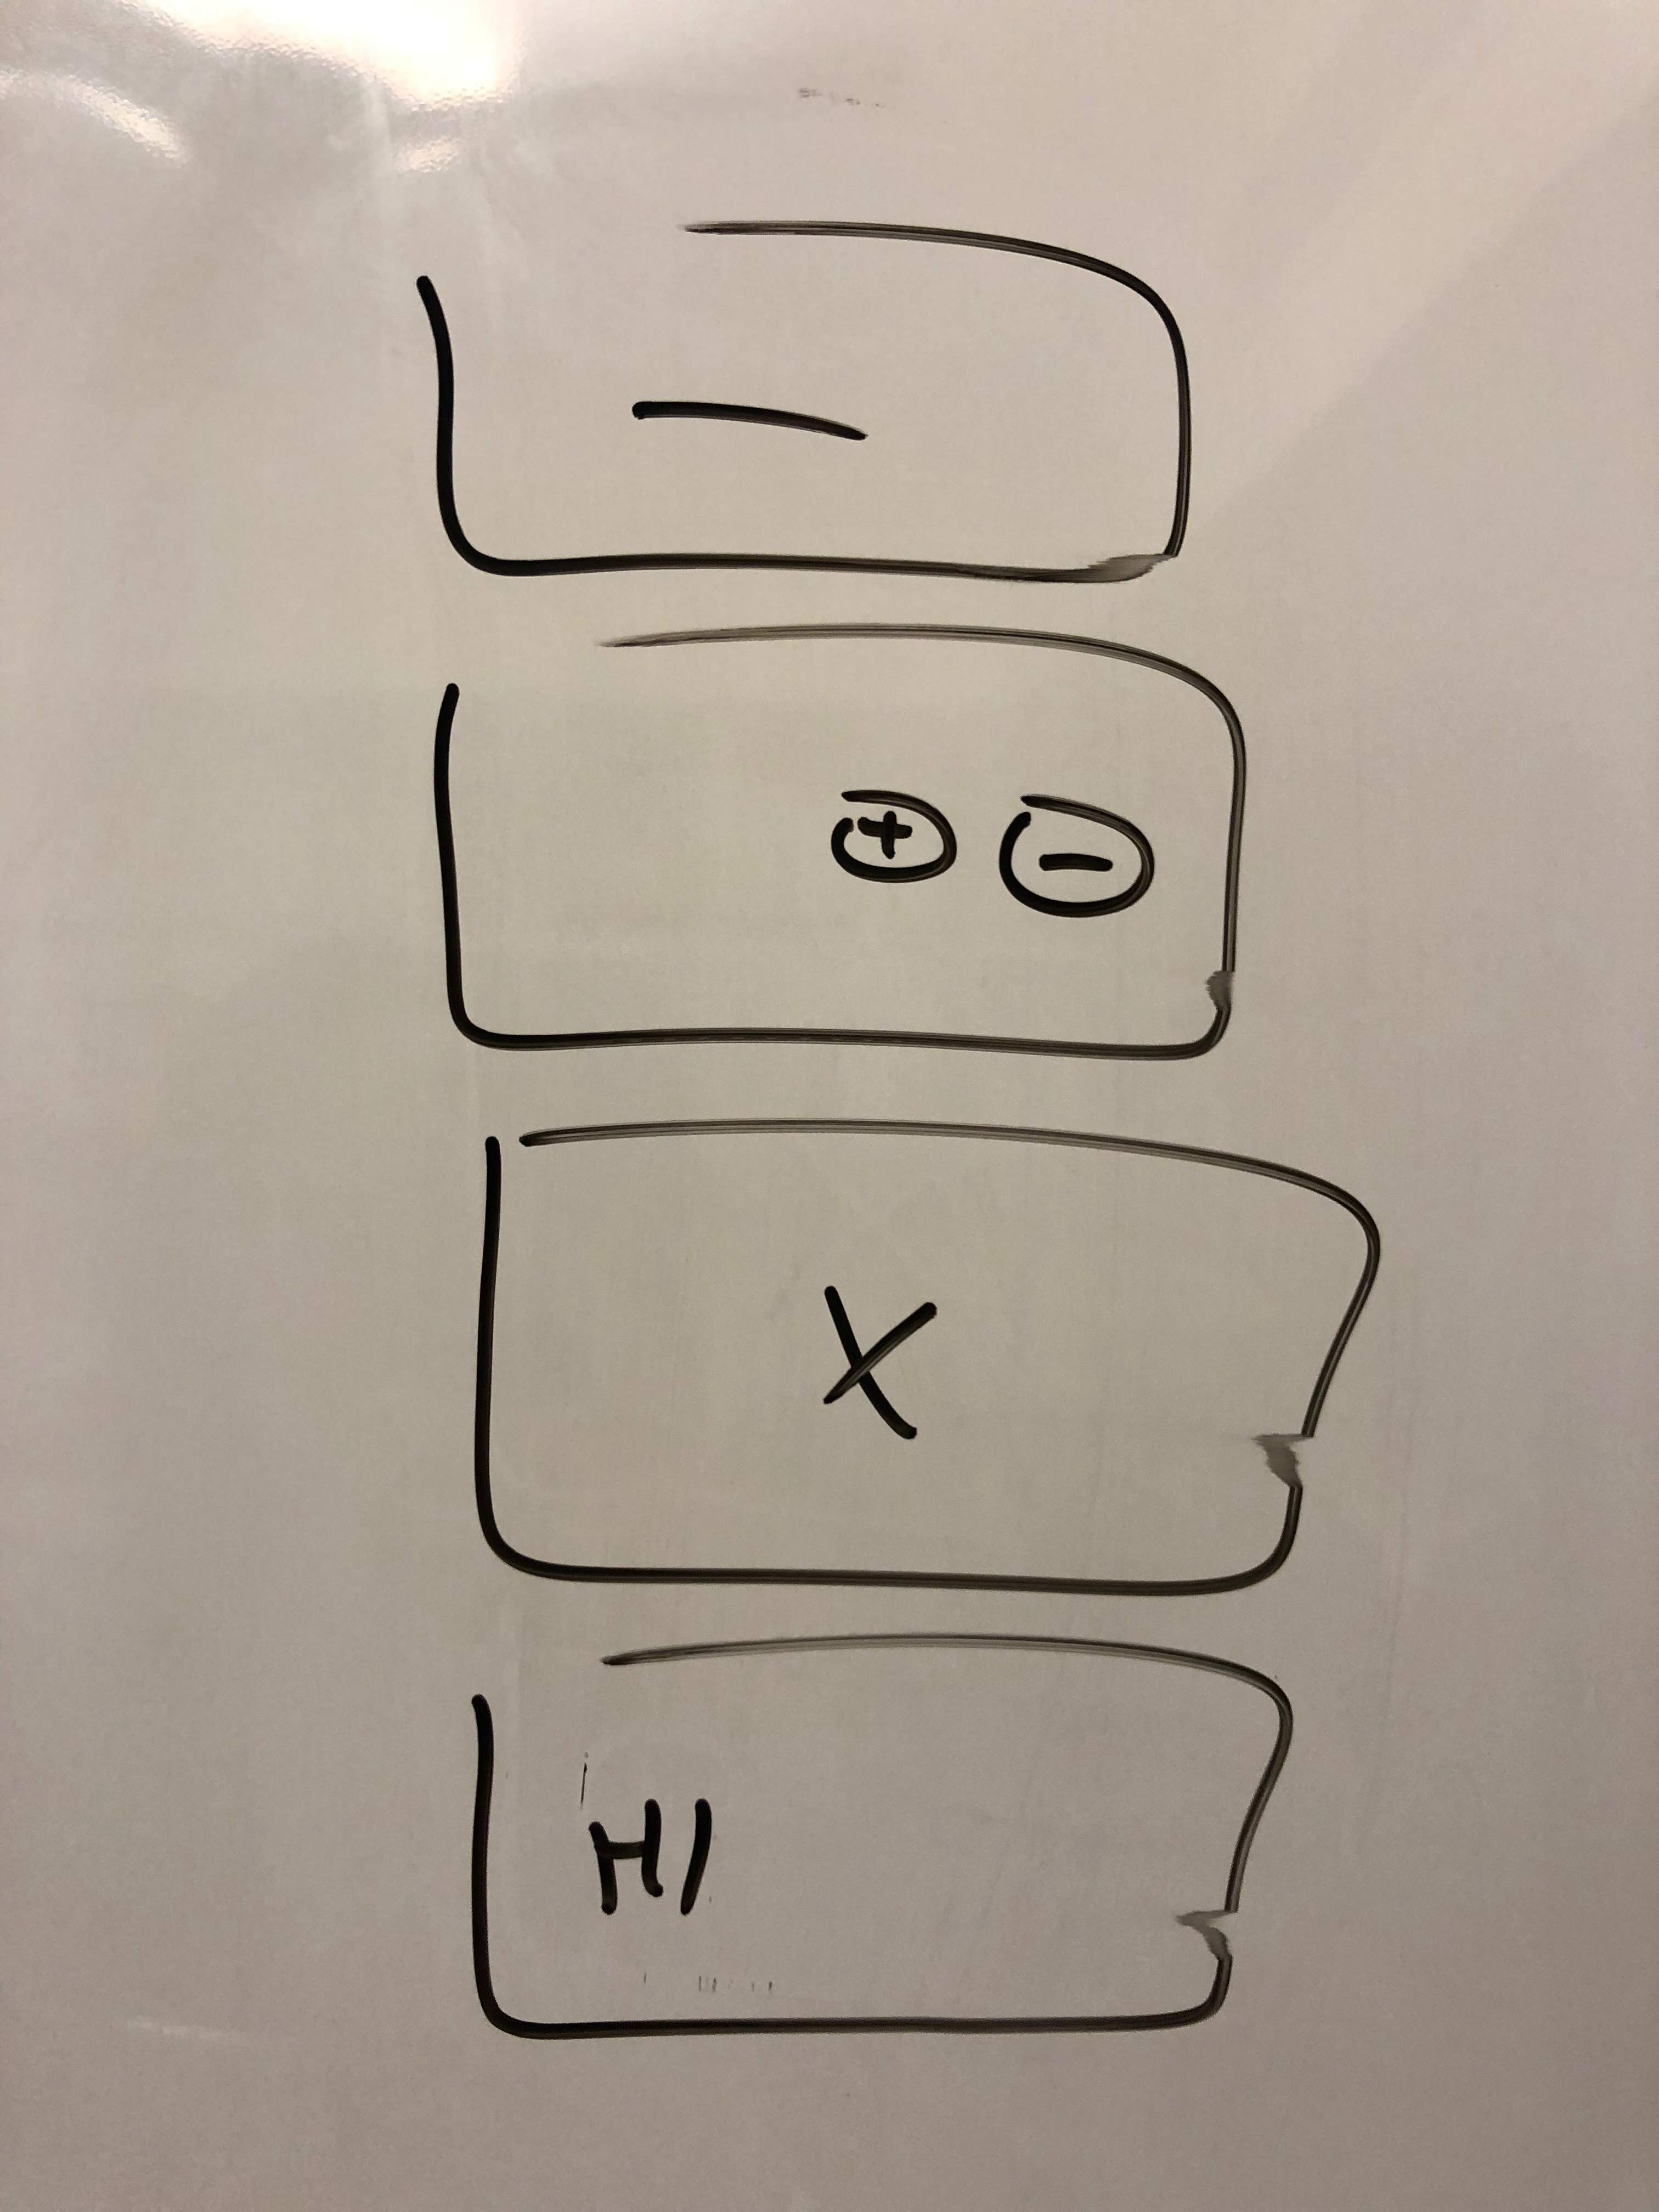 -
+ -
X
HI